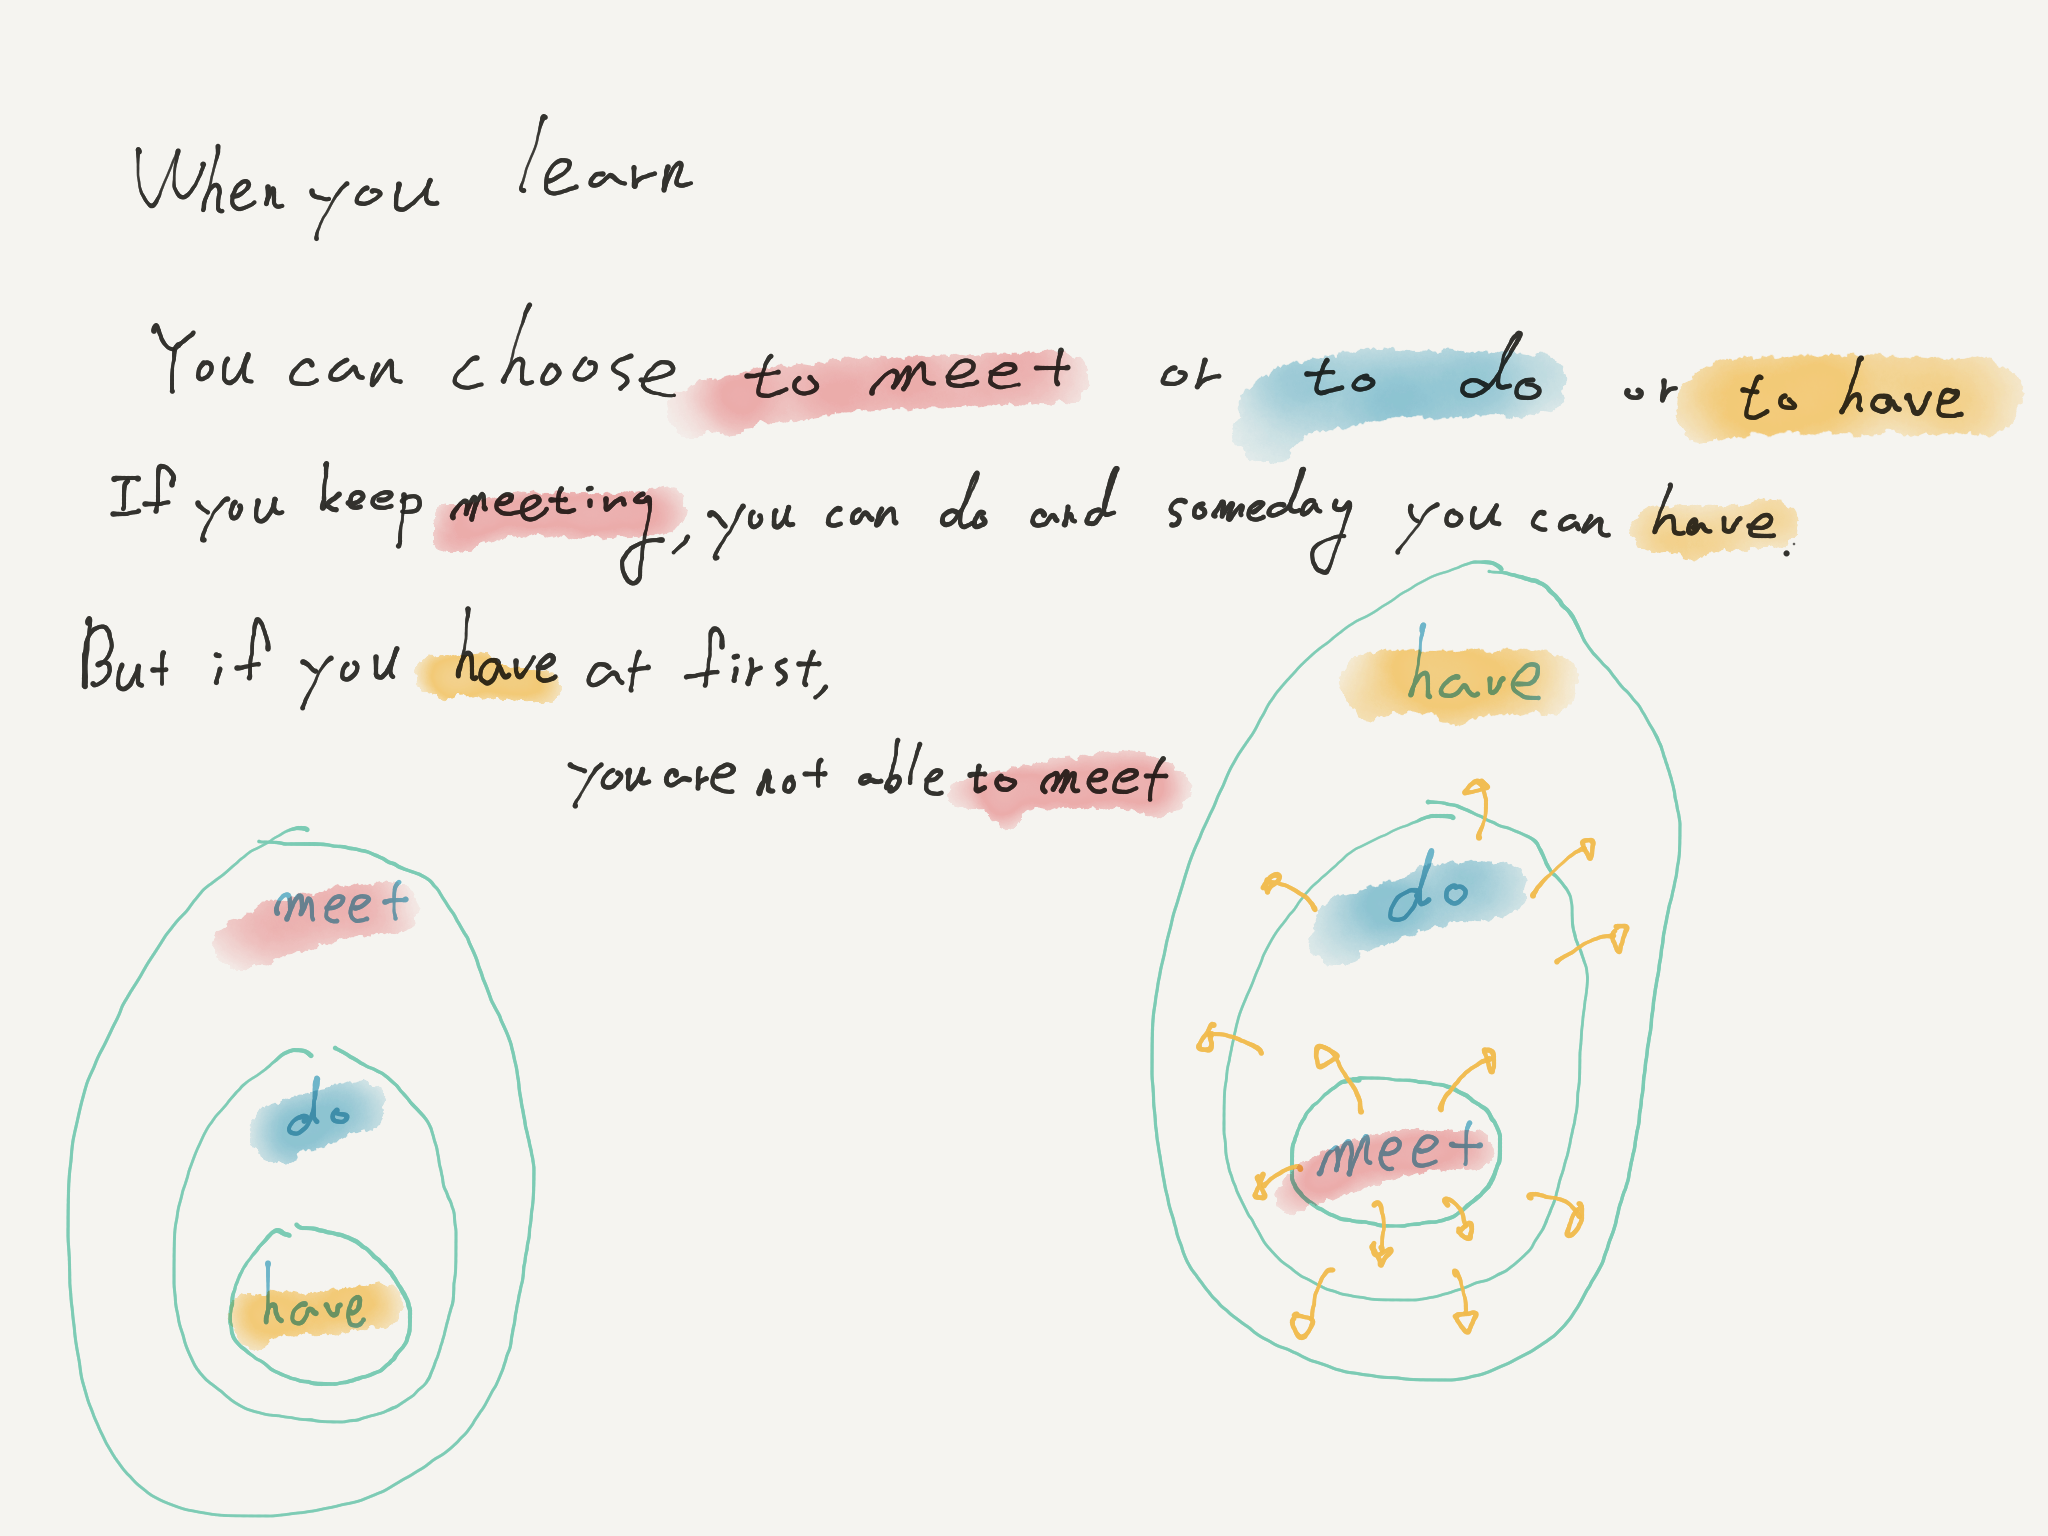 When you learn
You can choose to meet or to do or to have
If you keep meeting, you can do and someday you can have.
But if you have at first,
you are not able to meet
meet
do
have
have
do
meet